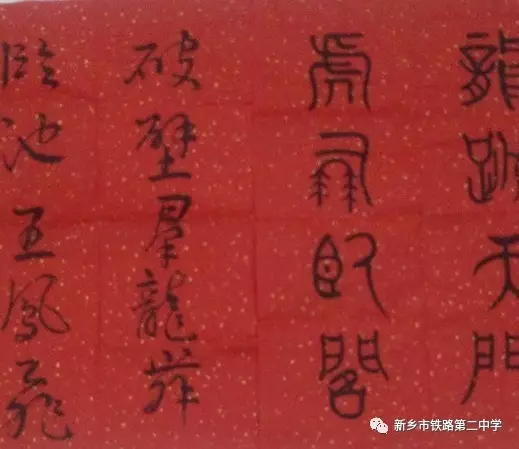 龍跳天門
虎臥閣
破壁羣龍舞
臨池五鳳飛
新乡市铁路第二中学